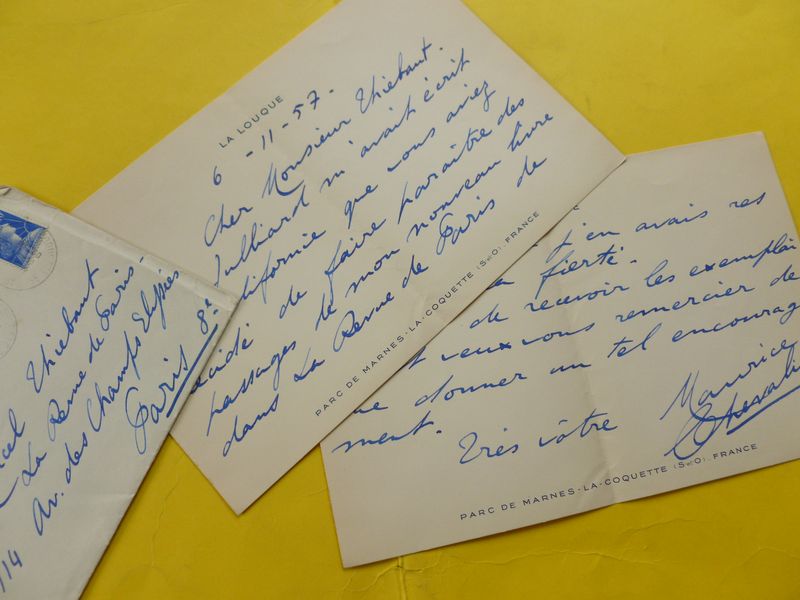 LA LOUQUE
6-11-57.
Cher Monsieur Thiébaut.
Julliard m'avait écrit
Californie que vous aviez
décidé de faire paraître des
passages de mon nouveau livre
dans La Revue de Paris de
PARC DE MARNES-LA-COQUETTE (S-et-O) FRANCE
j'en avais res
fierté.
de recevoir les exemplai
veux vous remercier de
me donner un tel encourage
ment.
Très vôtre
Maurice
Chevali
PARC DE MARNES-LA-COQUETTE (S-et-O). FRANCE
cel Thiébaut
La Revue de Paris.
114 Av. des Champs Elysées
Paris 8e